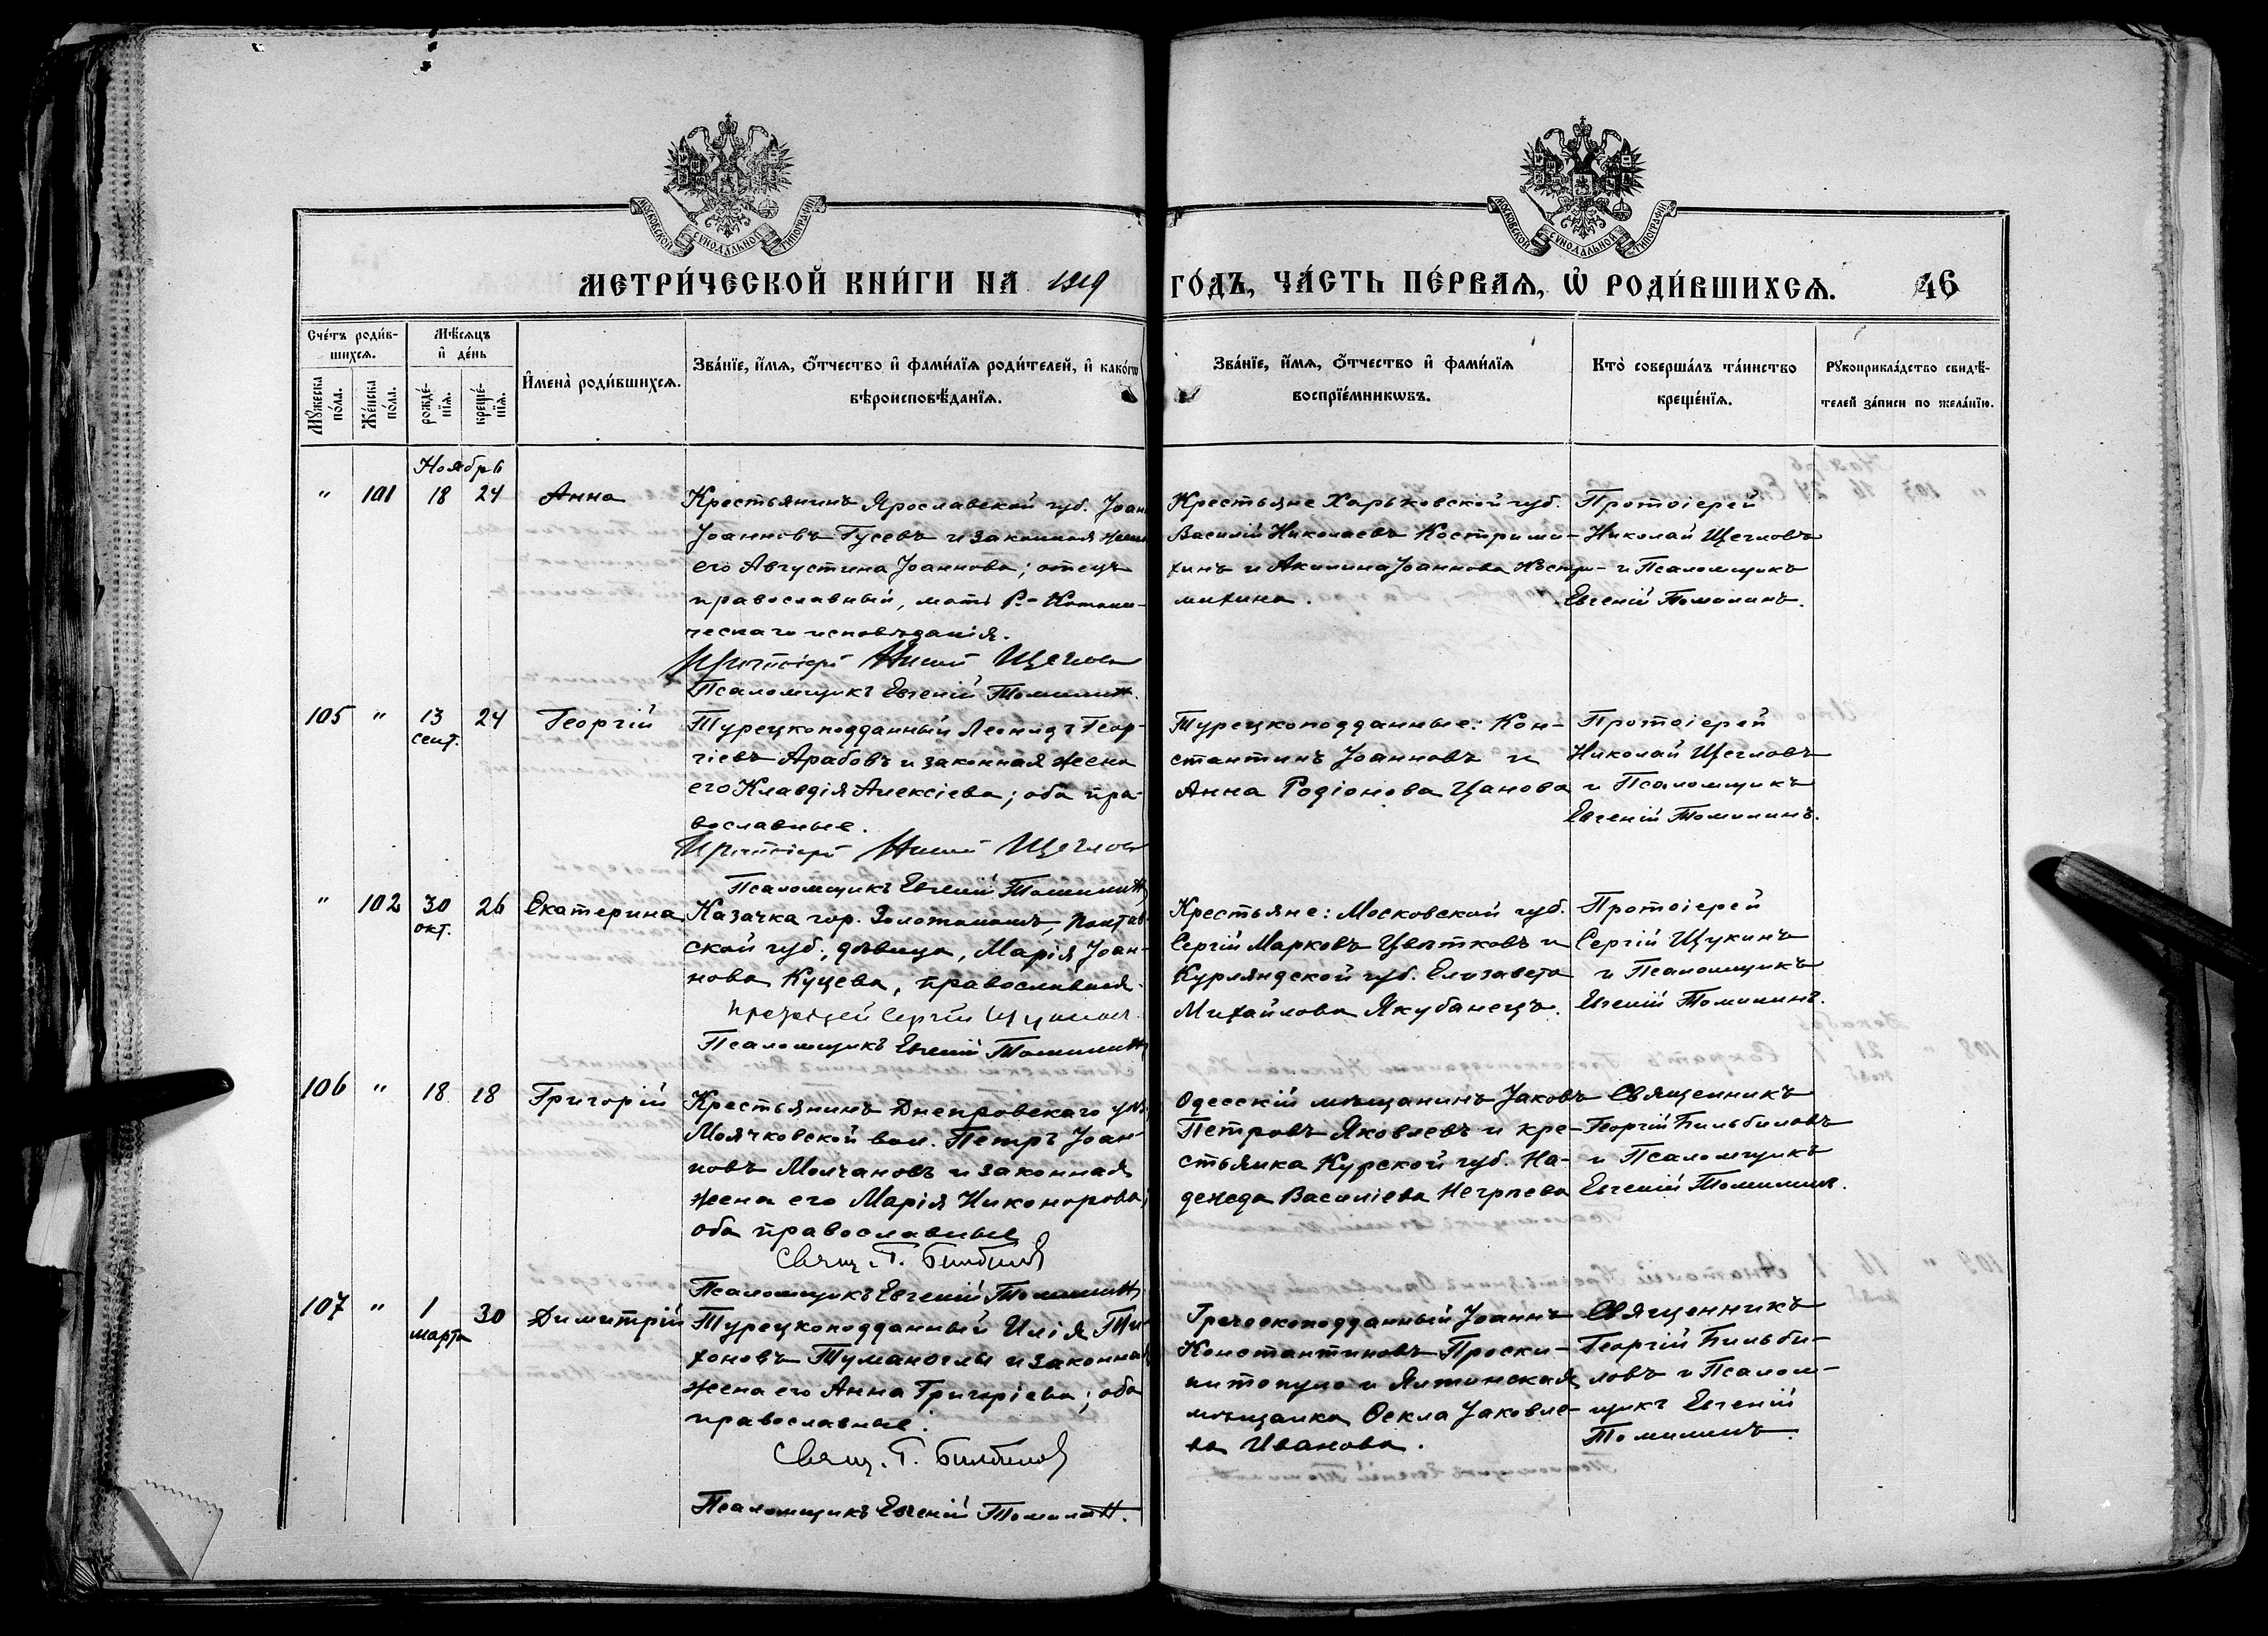 МОСКОВСКОЙ СѴНОДАЛЬНОЙ ТИПОГРАФІИ
МОСКОВСКОЙ СѴНОДАЛЬНОЙ ТИПОГРАФІИ
МЕТРИ́ЧЕСКОЙ КНИ́ГИ НА 1919 ГО́ДЪ, ЧА́СТЬ ПЕ́РВАЯ, Ѡ҆ РОДИ́ВШИХСЯ. 46
Сче́тъ роди́в-
шихсѧ.
Мꙋ́жеска по́ла.
Же́нска по́ла.
Мѣ́сѧцъ
и҆ де́нь
рожде́-
нїѧ.
креще́-
нїѧ.
И҆мена̀ роди́вшихсѧ.
Зва́нїе, и҆́мѧ, ѻ҆́тчество и҆ фами́лїѧ роди́телей, и҆ како́гѡ
вѣроисповѣ́данїѧ.
Зва́нїе, и҆́мѧ, ѻ҆́тчество и҆ фами́лїѧ
воспрїе́мникѡвъ.
Кто̀ соверша́лъ та́инство
креще́нїѧ.
Рꙋкоприкла́дство свидѣ́-
телей за́писи по жела́нїю.
Ноябрь
" 101 18 24 Анна
Крестьянинъ Ярославской губ. Іоан
Іоанновъ Гусевъ и законная жена
его Августина Іоаннова; отецъ
православный, мать Р.-Католи-
ческаго исповѣданія.
Протоіерей Щегловъ
Псаломщикъ Евгеній Томилинъ.
Крестьяне Харьковской губ.
Василій Николаевъ Кострими-
хинъ и Акилина Іоаннова Костри-
михина.
Протоіерей
Николай Щегловъ
и Псаломщикъ
Евгеній Томилинъ.
105 " 13 24 Георгій
сент.
Турецкоподданный Леонидъ Геор-
гіевъ Арабовъ и законная жена
его Клавдія Алексіева; оба пра-
вославные.
Протоіерей Щегловъ
Псаломщикъ Евгеній Томилинъ
Турецкоподданные: Кон-
стантинъ Іоанновъ и
Анна Родіонова Цанова
Протоіерей
Николай Щегловъ
и Псаломщикъ
Евгеній Томилинъ.
" 102 30 26 Екатерина
окт.
Казачка гор. Золотоношъ, Полтав-
ской губ., дѣвица, Марія Іоан-
нова Куцева, православная.
Протоіерей Сергій Щукинъ.
Псаломщикъ Евгеній Томилинъ
Крестьяне: Московской губ.
Сергій Марковъ Цвѣтковъ и
Курляндской губ. Елизавета
Михайлова Якубанецъ.
Протоіерей
Сергій Щукинъ
и Псаломщикъ
Евгеній Томилинъ.
106 " 18 18 Григорій
Крестьянинъ Днепровскаго уѣз.
Моячковской вол. Петръ Іоан-
новъ Молчановъ и законная
жена его Марія Никонорова;
оба православные
Свящ. Г. Бильбиловъ
Псаломщикъ Евгеній Томилинъ
Одесскій мѣщанинъ Іаковъ
Петровъ Яковлевъ и кре-
стьянка Курской губ. На-
дежда Василіева
Священникъ
Георгій Бильбиловъ
и Псаломщикъ
Евгеній Томилинъ.
107 " 1 30 Димитрій
марта
Турецкоподданный Илія Ти-
хоновъ Туманоглы и законная
жена его Анна Григоріева; оба
православные.
Свящ. Г. Бильбиловъ
Псаломщикъ Евгеній Томилин.
Греческоподданный Іоаннъ
Константиновъ Проски-
нитопуло и Ялтинская
мѣщанка Ѳекла Іаковле-
ва Иванова.
Священникъ
Георгій Бильби-
ловъ и Псалом-
щикъ Евгеній
Томилинъ.